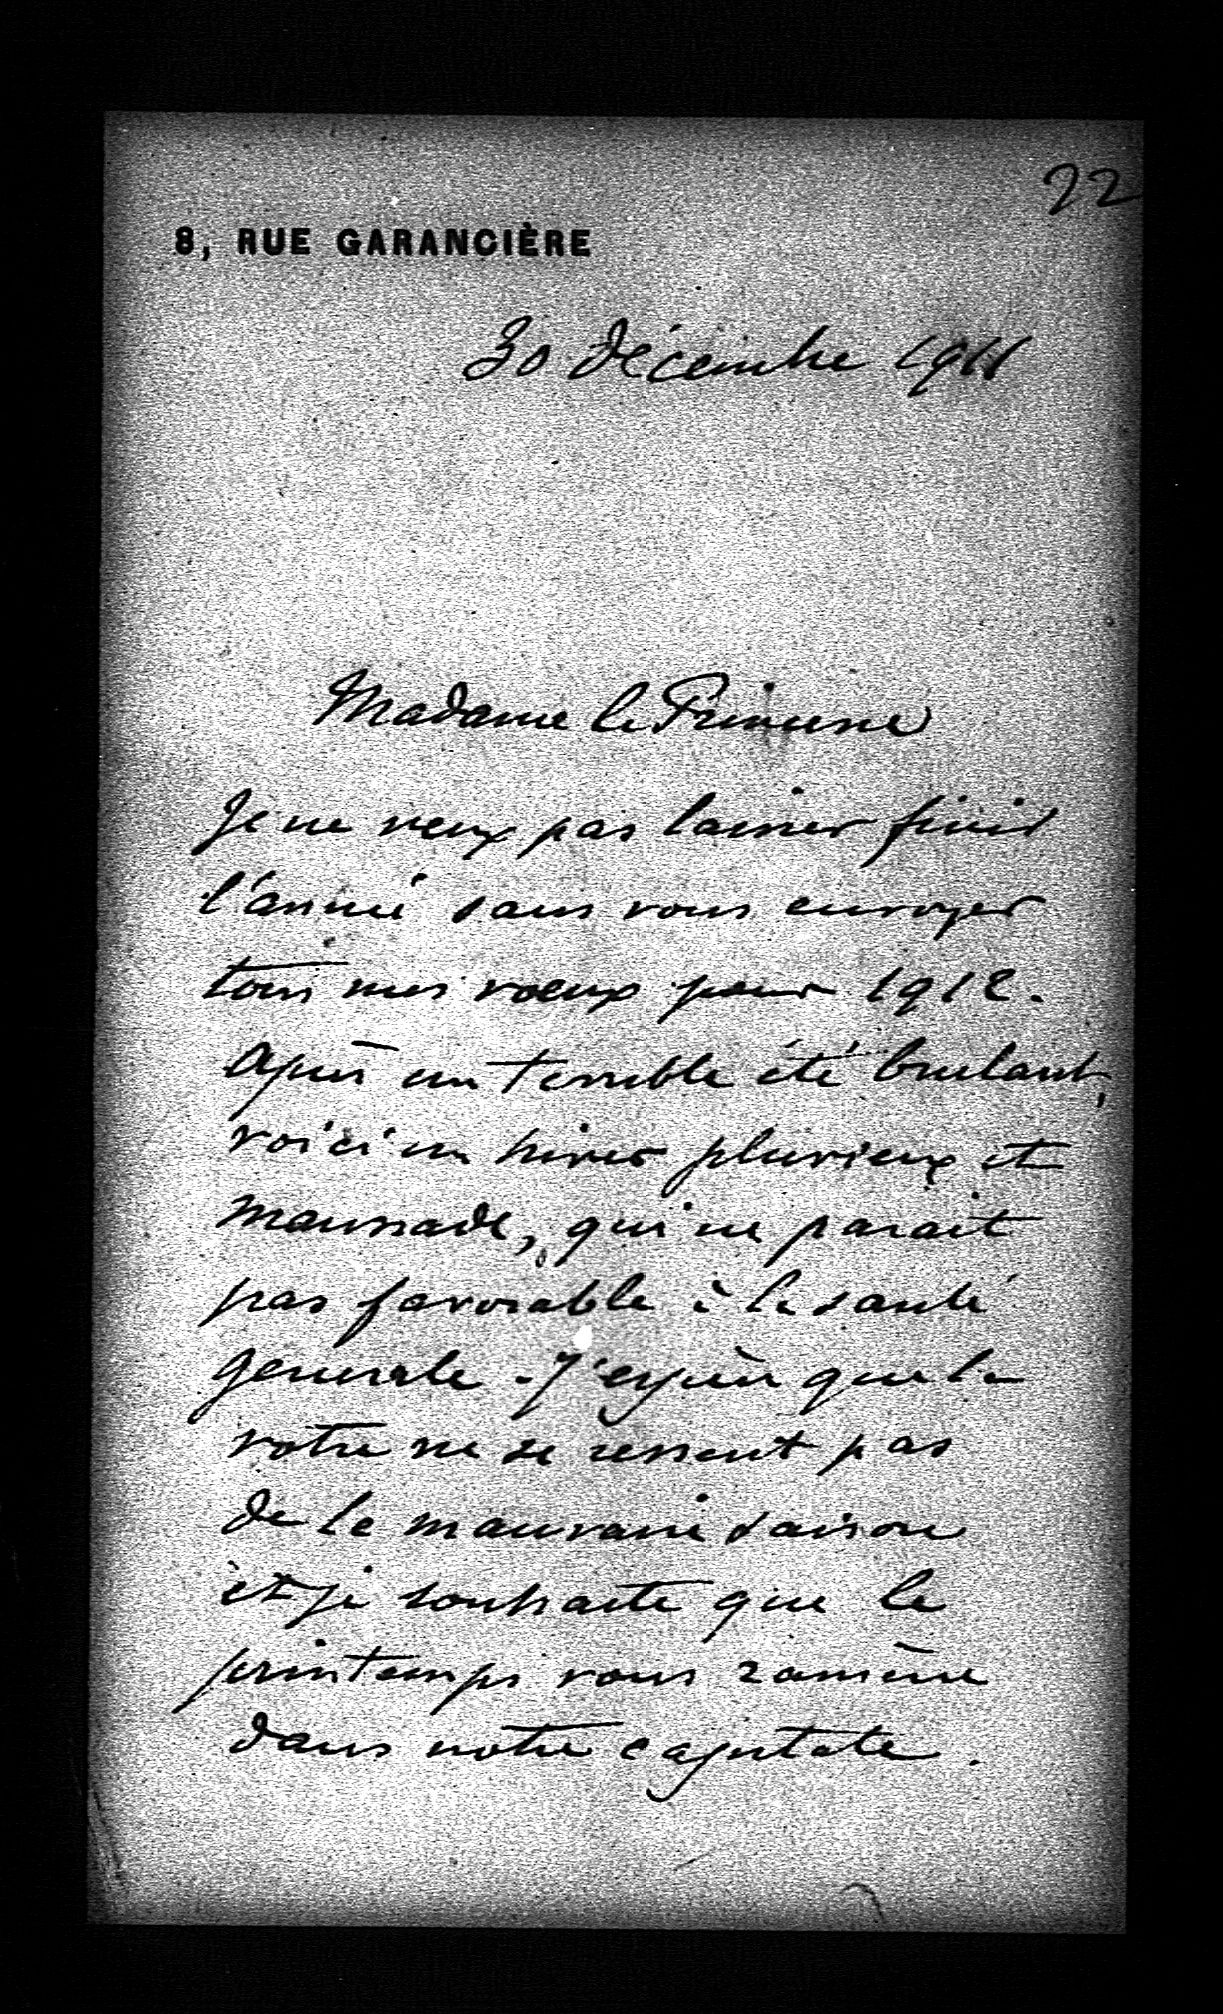 22
8, RUE GARANCIÈRE
30 décembre 1911
Madame la Princesse
Je ne veux pas laisser finir
l'année sans vous envoyer
tous mes voeux pour 1912.
Après un terrible été brulant,
voici un hiver pluvieux et
maussade, qui ne parait
pas favorable à la santé
generale. J'espère que la
votre ne se ressent pas
de la mauvaise saison
et je souhaite que le
printemps vous ramène
dans notre capitale.